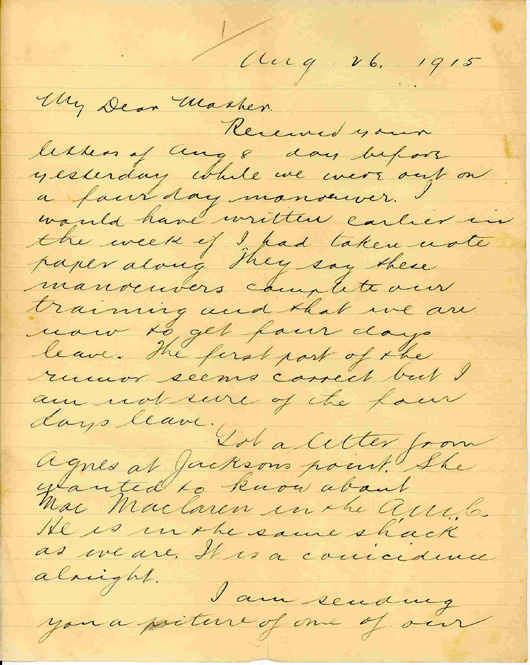 Aug 26. 1915
My Dear Mother
Received your
letters of Aug 8 day before
yesterday while we were out on
a four day manouver. I
would have written earlier in
the week if I had taken note
paper along They say these
manouvers complete our
training and that we are
now to get four days
leave. The first part of the
rumor seems correct but I
am not sure of the four
days leave.
Got a letter from
Agnes at Jacksons point. She
wanted to know about
Mac Maclaren in the A.M.C.
He is in the same shack
as we are. It is a conicidence
alright.
I am sending
you a picture of one of our